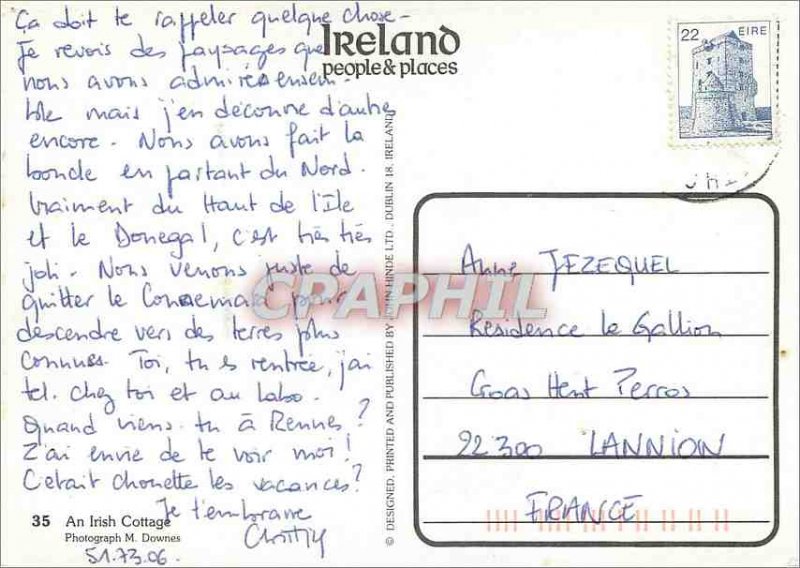 Ça doit te rappeler quelque chose -
Je revois des paysages que
nous avons admirés ensem-
ble mais j'en découvre d'autres
encore. Nous avons fait la
boucle en partant du Nord.
Vraiment du Haut de l'Ile
et le Donegal, c'est très très
joli. Nous venons juste de
quitter le Connemara pour
descendre vers des terres plus
connues. Toi, tu es rentrée, j'ai
tel. chez toi et au labo.
Quand viens-tu à Rennes ?
J'ai envie de te voir moi !
C'était chouette les vacances ?
Je t'embrasse
51.73.06
35 An Irish Cottage
Photograph M. Downes
IRELAND
people & places
© DESIGNED, PRINTED AND PUBLISHED BY JOHN HINDE LTD., DUBLIN 18, IRELAND
22 EIRE
CPAPHIL
Anne JEZEQUEL
Résidence le Gallion
Croas Hent Perros
22300 LANNION
FRANCE